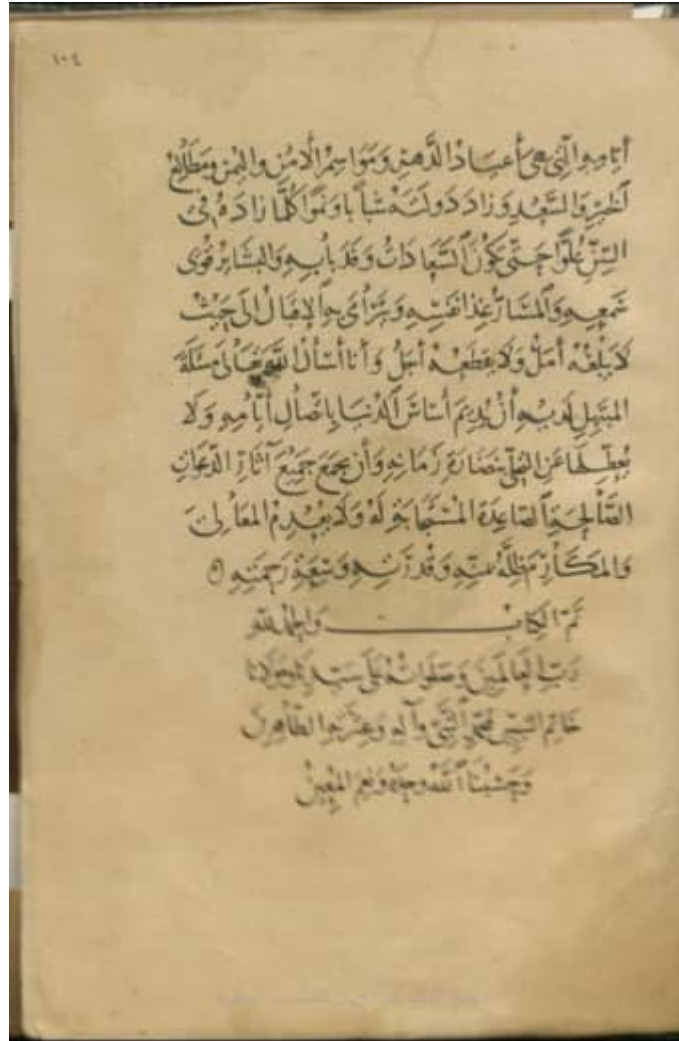 ١٠٤
أيامه التي هي أعياد الدهر ومواسم الأمن واليمن ومطالع
الخير والسعد وزاد دولته شبابا ونموا كلما زاده في
السن علوا حتى تكون السعادات وفد بابه والبشائر قرى
سمعه والمسار غذاء نفسه ويترامى به الإقبال إلى حيث
لا يبلغه أمل ولا يقطعه أجل وأنا أسأل الله تعالى مسئلة
المبتهل لديه أن يديم أساس الدنيا باتصال أيامه ولا
يعطلها عن التحلي بنضارة زمانه وأن يجمع جميع آثار الدعوات
الصالحة الصاعدة المستجابة له ولا يعدم المعالي
والمكارم ظله بمنه وقدرته وسعة رحمته
تم الكتاب والحمد لله
رب العالمين وصلواته على سيدنا ومولانا
خاتم النبيين محمد النبي وآله وعترته الطاهرين
وحسبنا الله وحده ونعم المعين